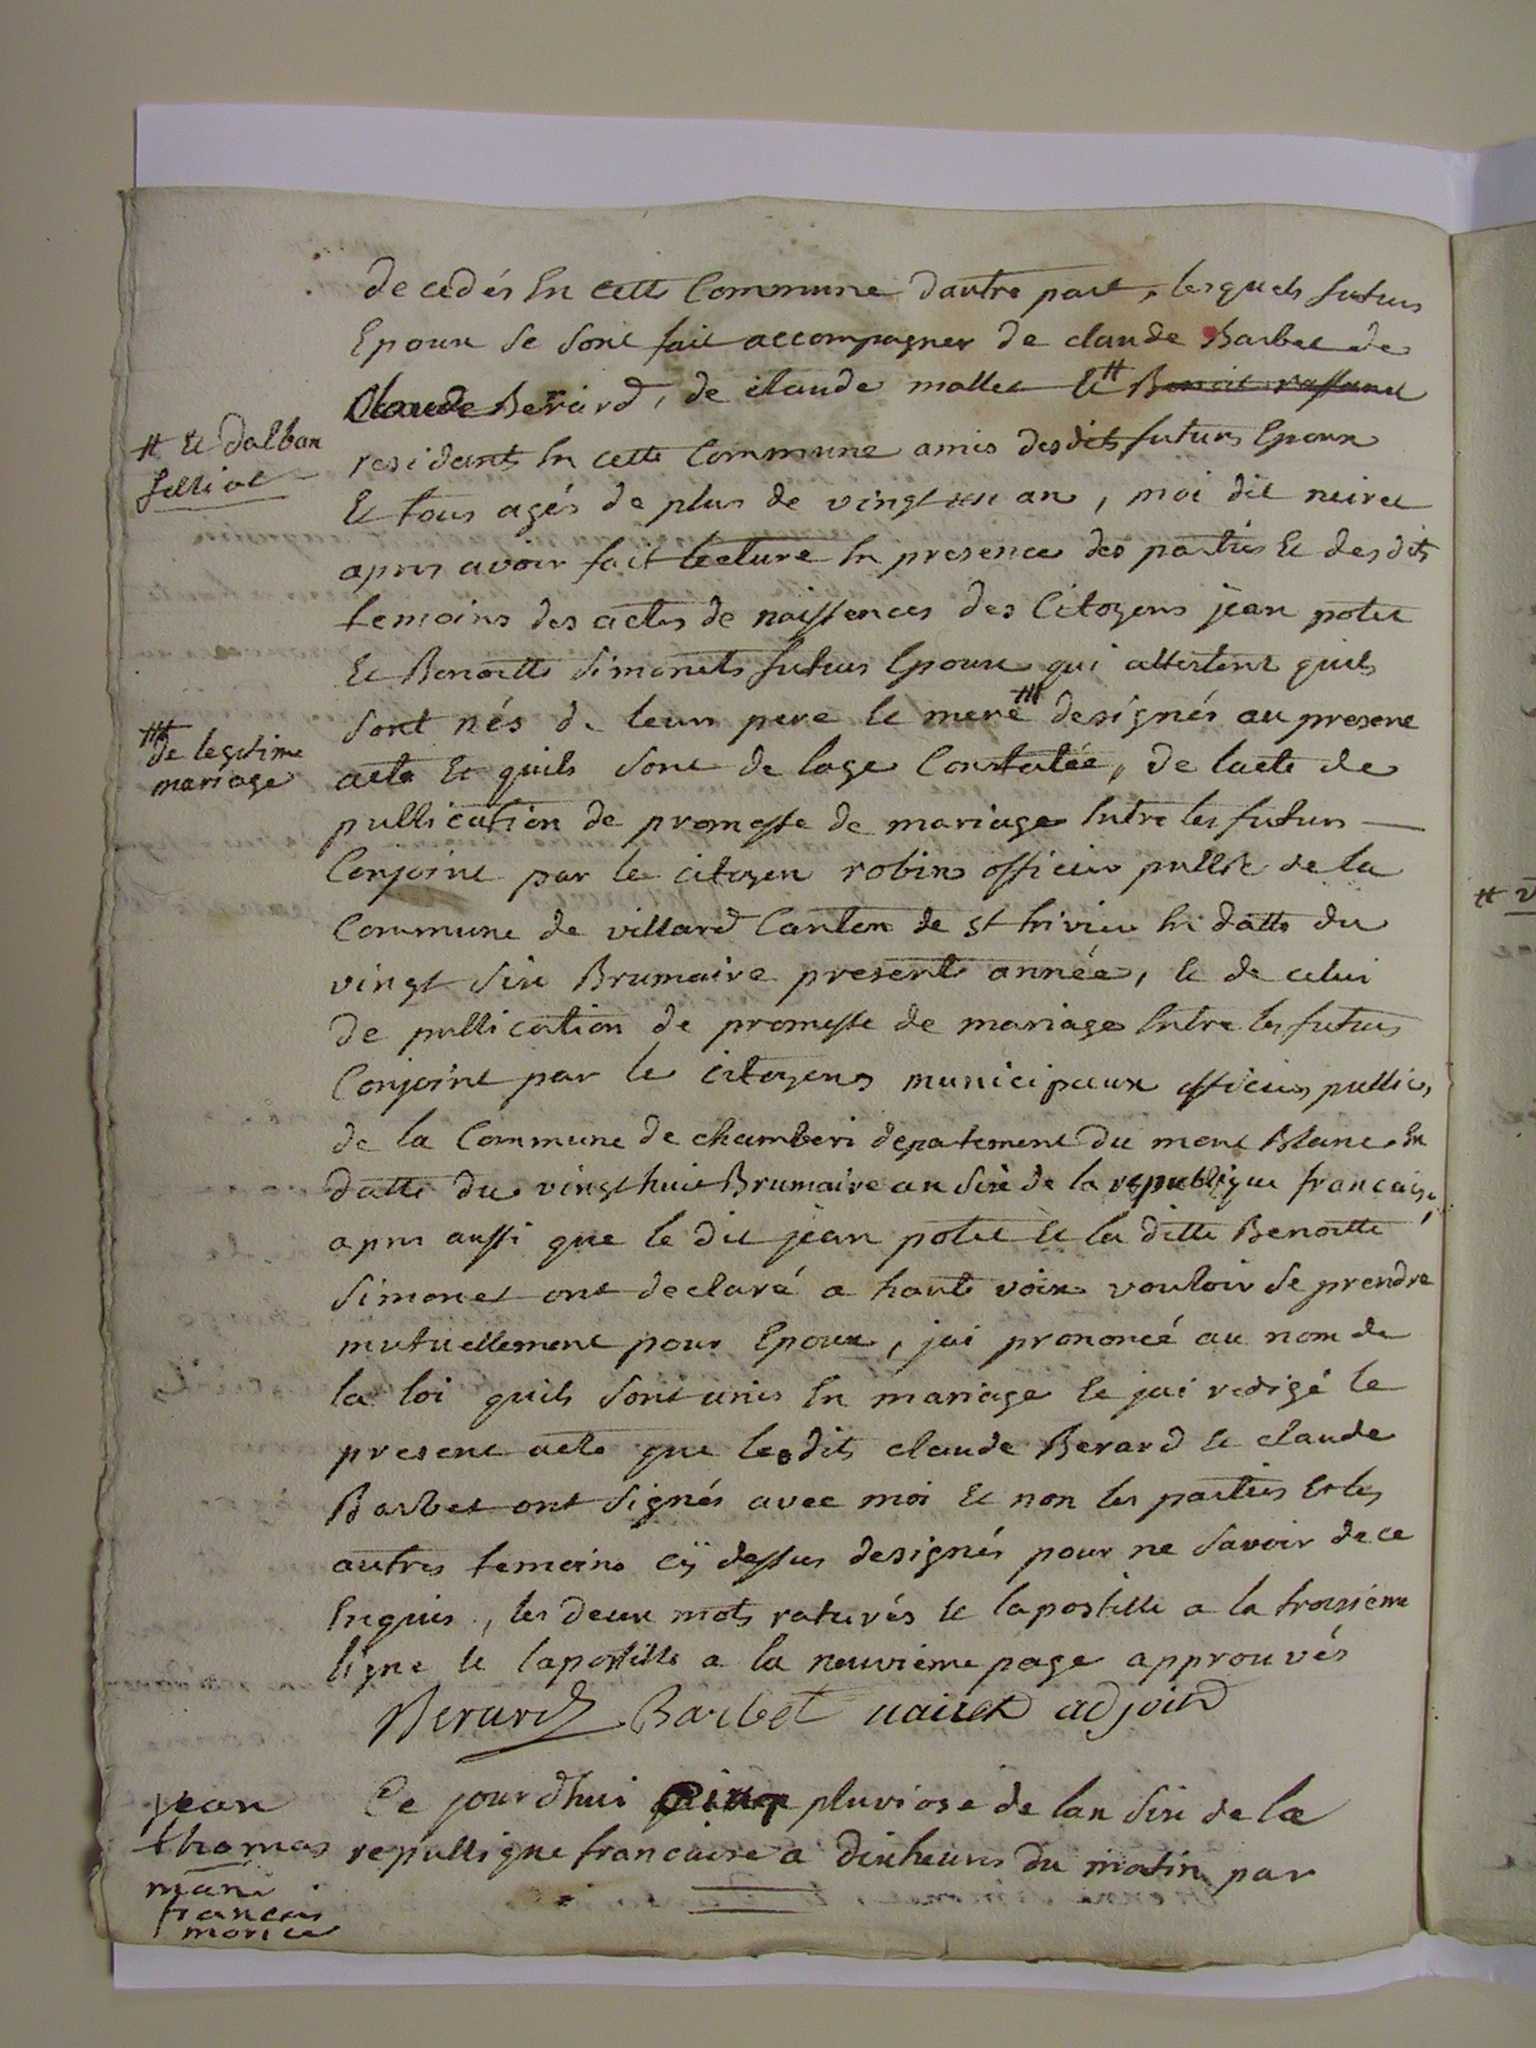 decedés En cette Commune dautre part, lesquels futurs
Epoux se sont fait accompagner de claude Barbet de
Claude Berard, de claude mallet et # Benoit
# Et dalban
felliat
residants En cette Commune amis desdits futurs Epoux
Et tous agés de plus de vingt un an, moi dit neiret
apres avoir fait lecture En presence des parties Et desdits
temoins des actes de naissences des Citoyens jean potet
Et Benoitte Simonets futurs Epoux qui attestent quils
sont nés de leurs pere et mere ## designés au present
## de legitime
mariage
acte Et quils sont de lage Constatée, de lacte de
publication de promesse de mariage Entre les futurs
Conjoint par le citoyen robin officier public de la
Commune de villard Canton de st trivier En datte du
vingt six Brumaire presente année, et de celui
de publication de promesse de mariage Entre les futurs
Conjoint par le citoyens municipaux officiers publics
de la Commune de chamberi depatement du mont Blanc En
datte du vingt huit Brumaire an six de la republique francaise,
apres aussi que le dit jean potet et la ditte Benoitte
Simonet ont declaré a haute voix vouloir se prendre
mutuellement pour Epoux, jai prononcé au nom de
la loi quils sont unis En mariage et jai redigé le
present acte que lesdits claude Berard et claude
Barbet ont signés avec moi Et non les parties Et les
autres temoins cÿ dessus designés pour ne savoir de ce
Enquis, les deux mots raturés et lapostille a la troisieme
ligne et lapostille a la neuvieme page approuvés
Berard Barbet adjoint
jean
thomas
mari
francois
morice
Ce jourdhui pluviose de lan six de la
republique francaise a dix heures du matin par